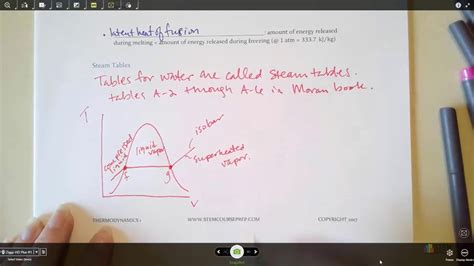 • latent heat of fusion amount of energy released
during melting = amount of energy released during freezing (@ 1 atm = 333.7 kJ/kg)
Steam Tables
Tables for water are called steam tables.
tables A-2 through A-6 in Moran book.
T
isobar
compressed
liquid
liquid
vapor
superheated
vapor.
f
g
v
THERMODYNAMICS 1
WWW.STEMCOURSEPREP.COM
COPYRIGHT 2017